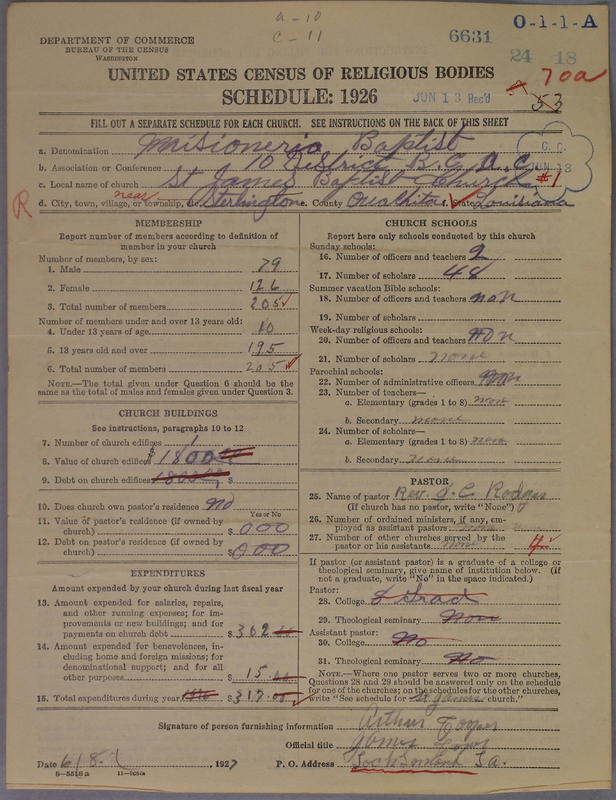 a-10
c-11
O-1-1-A
6631
24 18
DEPARTMENT OF COMMERCE
BUREAU OF THE CENSUS
WASHINGTON
UNITED STATES CENSUS OF RELIGIOUS BODIES
70a
SCHEDULE: 1926
JUN 13 Rec'd
53
FILL OUT A SEPARATE SCHEDULE FOR EACH CHURCH. SEE INSTRUCTIONS ON THE BACK OF THIS SHEET
a. Denomination Misioneria Baptist
C. C.
b. Association or Conference 10 District B. C. A. C.
JUN 13
c. Local name of church St James Baptist Church #1
R
d. City, town, village, or township, etc. near Sterlington County Ouachita State Louisiana
MEMBERSHIP
Report number of members according to definition of member in your church
Number of members, by sex:
1. Male 79
2. Female 126
3. Total number of members 205
Number of members under and over 13 years old:
4. Under 13 years of age 10
5. 13 years old and over 195
6. Total number of members 205
NOTE.—The total given under Question 6 should be the
same as the total of males and females given under Question 3.
CHURCH BUILDINGS
See instructions, paragraphs 10 to 12
7. Number of church edifices 1
8. Value of church edifices $1800
9. Debt on church edifices 1800
10. Does church own pastor's residence no
Yes or No
11. Value of pastor's residence (if owned by
church) $000
12. Debt on pastor's residence (if owned by
church) $000
EXPENDITURES
Amount expended by your church during last fiscal year
13. Amount expended for salaries, repairs,
and other running expenses; for im-
provements or new buildings; and for
payments on church debt $302
14. Amount expended for benevolences, in-
cluding home and foreign missions; for
denominational support; and for all
other purposes $15
15. Total expenditures during year $317
CHURCH SCHOOLS
Report here only schools conducted by this church
Sunday schools:
16. Number of officers and teachers 2
17. Number of scholars 48
Summer vacation Bible schools:
18. Number of officers and teachers non
19. Number of scholars
Week-day religious schools:
20. Number of officers and teachers non
21. Number of scholars none
Parochial schools:
22. Number of administrative officers non
23. Number of teachers—
a. Elementary (grades 1 to 8) non
b. Secondary none
24. Number of scholars—
a. Elementary (grades 1 to 8) non
b. Secondary none
PASTOR
25. Name of pastor Rev. J. C. Rodgers
(If church has no pastor, write "None")
26. Number of ordained ministers, if any, em-
ployed as assistant pastors none
27. Number of other churches served by the
pastor or his assistants none 4
If pastor (or assistant pastor) is a graduate of a college or
theological seminary, give name of institution below. (If
not a graduate, write "No" in the space indicated.)
Pastor:
28. College Grad
29. Theological seminary Non
Assistant pastor:
30. College No
31. Theological seminary No
NOTE.—Where one pastor serves two or more churches,
Questions 28 and 29 should be answered only on the schedule
for one of the churches; on the schedules for the other churches,
write "See schedule for St James church."
Signature of person furnishing information Arthur
Official title
Date 6/8 1927 P. O. Address La.
8-5516a